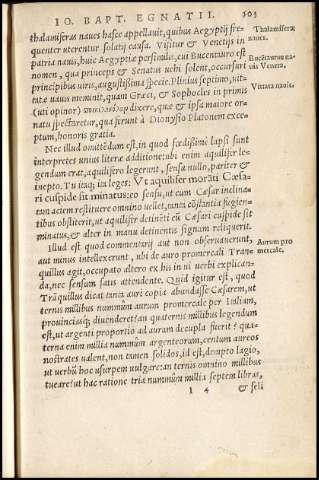 IO. BAPT. EGNATII. 503
thalamiferas naues hasce appellauit, quibus Aegyptij fre-
quenter uterentur solatij causa. Visitur & Venetijs in
patria nauis, huic Aegyptiæ persimilis, cui Bucentauro est
nomen, qua princeps & Senatus uehi solent, occursari
principibus uiris, augustissima specie. Plinius septimo, uit-
tatæ naues meminit, quam Græci, & Sophocles in primis
(uti opinor) dixere, quæ & ipsa maiore or-
natu spectaretur, qua ferunt à Dionysio Platonem exce-
ptum, honoris gratia.
Nec illud omittēdum est, in quo fœdissime lapsi sunt
interpretes unius literæ additione: ubi enim aquilifer le-
gendum erat, aquilifero legerunt, sensu nullo, pariter &
inepto. Tu itaq; ita leget: Vt aquilifer morāti Cæsa-
ri cuspide sit minatus: eo sensu, ut cum Cæsar inclina-
tam aciem restituere omnino uellet, tanta cōstantia fugien-
tibus obstiterit, ut aquilifer detinēti eū Cæsari cuspide sit
minatus, & alter in manu detinentis signum reliquerit.
Illud est quod commentarij aut non obseruauerunt,
aut nunus intellexerunt, ubi de auro promercali Tran-
quillus agit, occupato altero ex his in ui uerbi explican-
da, nec sensum satis attendente. Quid igitur est, quod
Trāquillus dicat tanta auri copia abundasse Cæsarem, ut
ternis millibus nummūm aurum promercale per Italiam,
prouinciasq; diuenderet? an quaternis millibus legendum
est, ut argenti proportio ad aurum decupla fuerit? qua-
terna enim millia nummūm argenteorum, centum aureos
nostrates ualent, non tamen solidos, id est, dempto lagio,
ut uerbū hoc usurpem uulgare: an ternis omnino millibus
tueare? ut hac ratione tria nummūm millia septem libras,
I 4 & seli
Thalamiferæ
naues.
Bucētaurus na-
uis Veneta.
Vittata nauis.
Aurum pro
mercale.